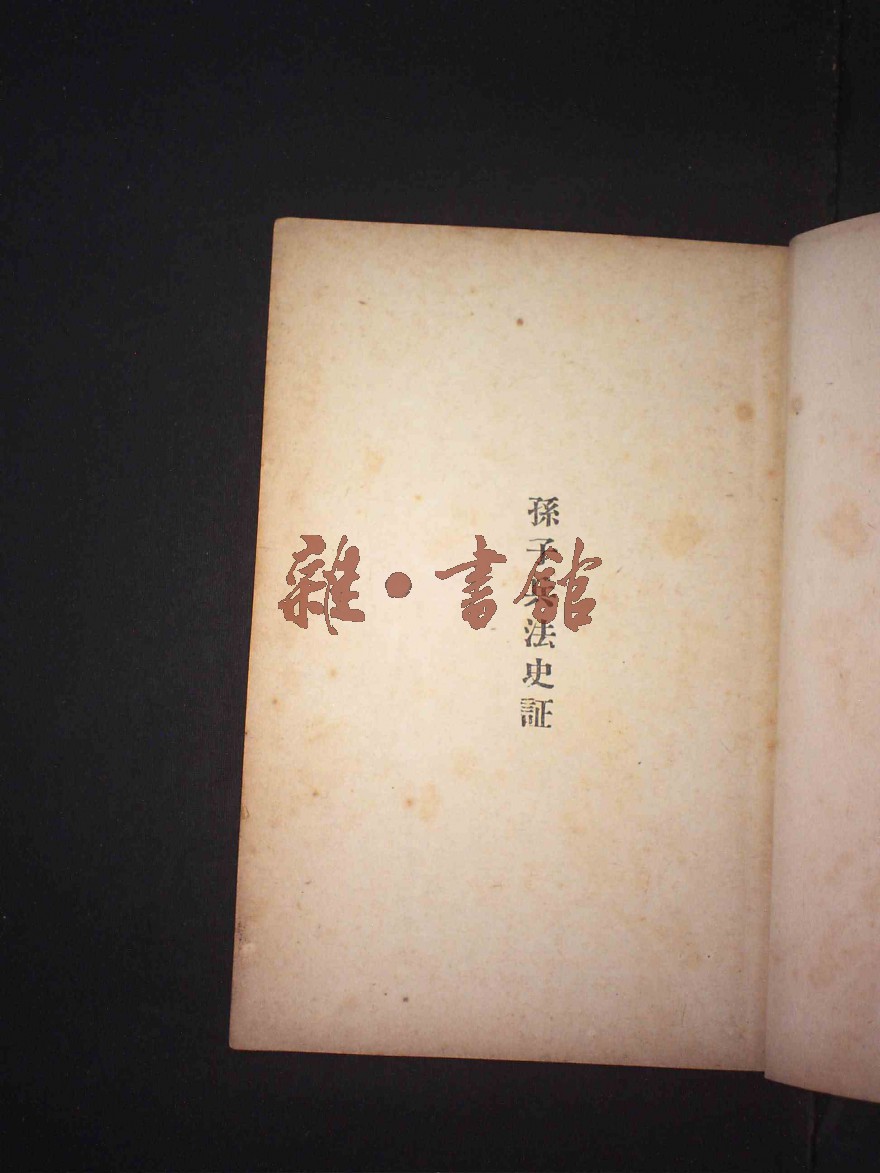 孫子兵法史証
雜·書館